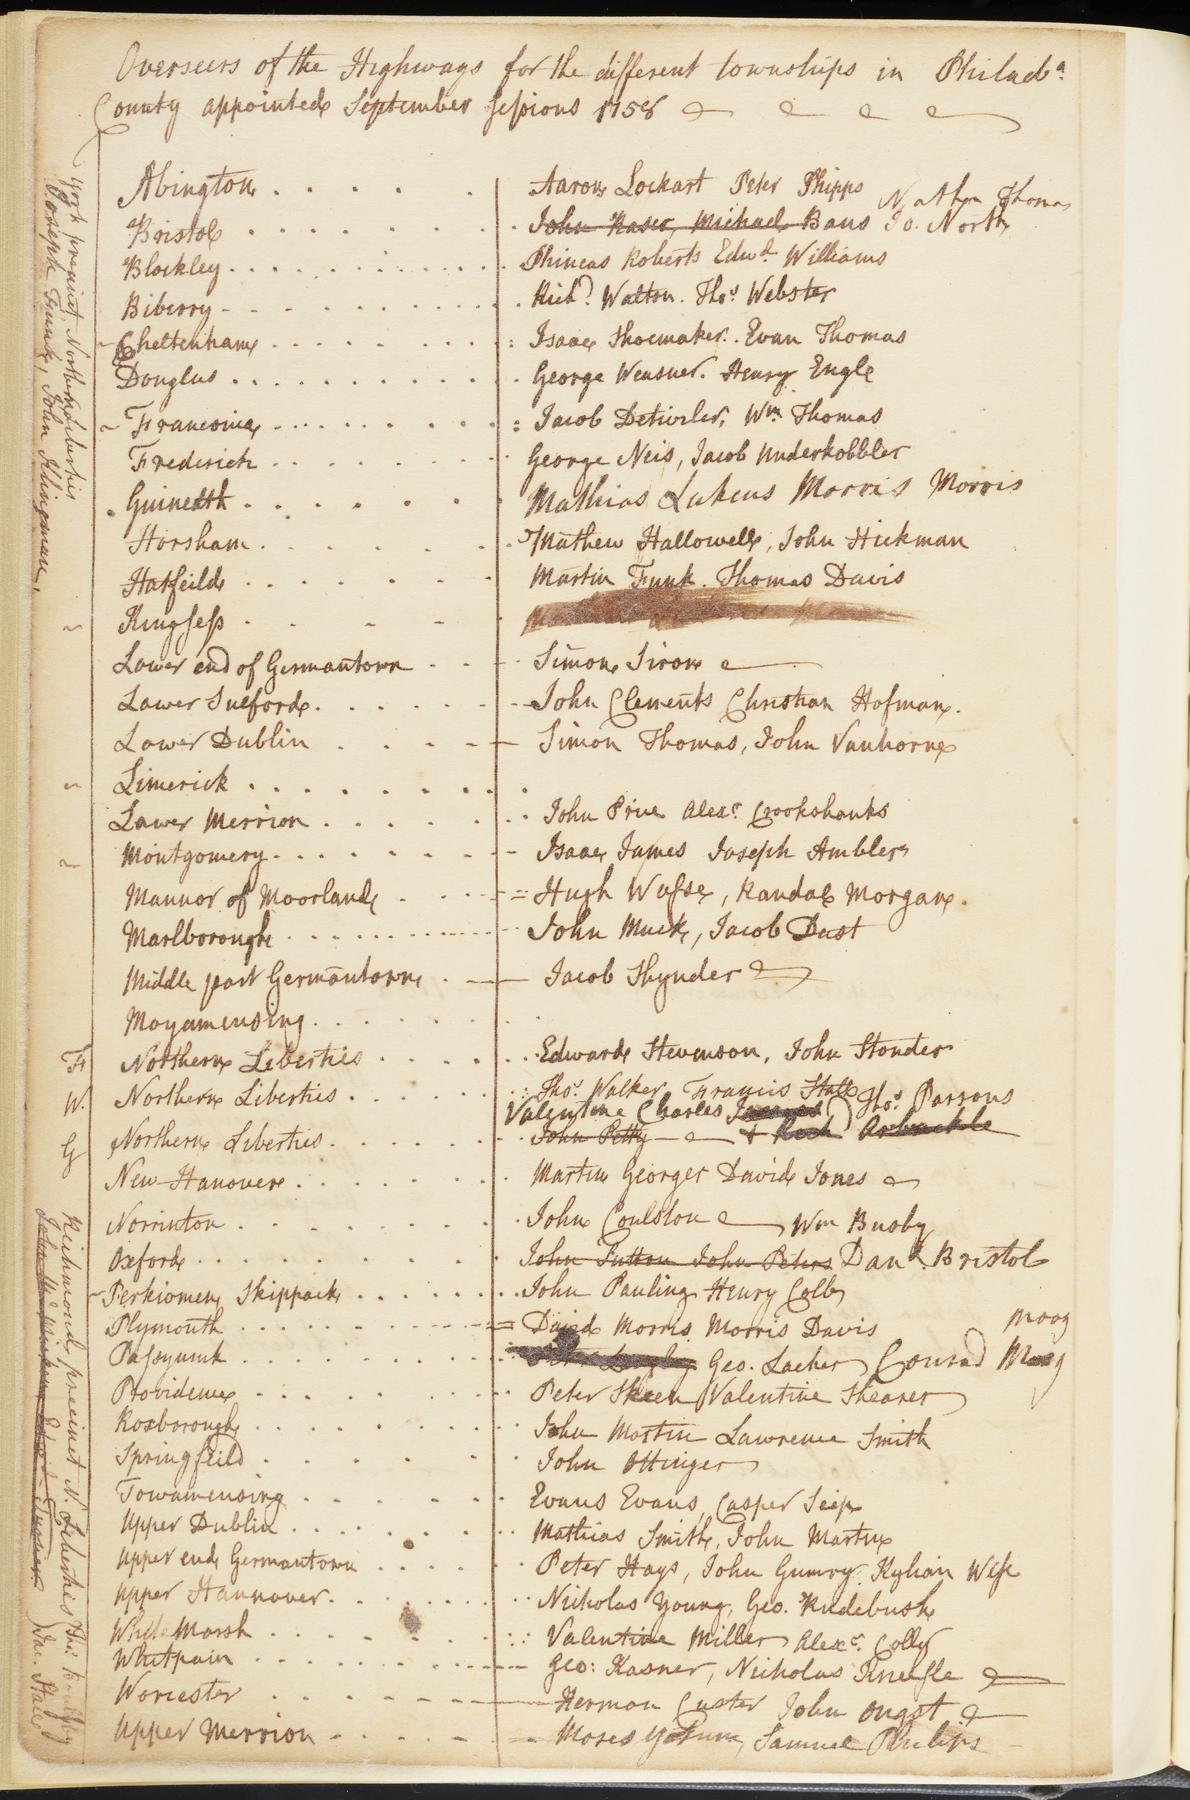 Overseers of the Highways for the different townships in Philada
County appointed September Sessions 1758
Abington . . . . . Aaron Lockart Peter Phipps
Nathn Thomas
Bristol . . . . . John Raser, Michael Baus Jo. North
Blockley . . . . . Phineas Roberts Edwd Williams
Biberry . . . . . Richd. Walton. Thos. Webster
Cheltenham . . . . . Isaac Shoemaker. Evan Thomas
Douglas . . . . . George Weasner. Henry Engle
Franconia . . . . . Jacob Detwiler, Wm Thomas
Frederick . . . . . George Neis, Jacob Underkobbler
Guinedth . . . . . Mathias Lukens Morris Morris
Horsham . . . . . Mathew Hallowell, John Hickman
Hatfeild . . . . . Martin Funk. Thomas Davis
Kingsess . . . . .
Lower end of Germantown . . . Simon Siron
Lower Sulford . . . . . John Clements Christian Hofman.
Lower Dublin . . . . . Simon Thomas, John Vanhorne
Limerick . . . . .
Lower Merrion . . . . . John Price Alexr. Crookshanks
Montgomery . . . . . Isaac James Joseph Ambler
Mannor of Moorland . . . Hugh Wafse, Randal Morgan.
Marlborough . . . . . John Muck, Jacob Dast
Middle part Germantown . . . Jacob Shynder
Moyamensing . . . . .
Northern Liberties . . . . . Edward Stevenson, John Stonder
W. Northern Liberties . . . . . Thos. Walker, Francis Hall Thos. Parsons
Valentine Charles
Northern Liberties . . . . . John Petty & Rich Arbuckle
New Hanover . . . . . Martin Georger David Jones
Norrinton . . . . . John Coulston Wm Busby
Oxford . . . . . John Sutton John Peters Danl. Bristol
Perkiomen Skippack . . . . . John Pauling Henry Colb
Plymouth . . . . . David Morris Morris Davis
Moog
Passyunk . . . . . Geo. Lacher Conrad Moog
Providence . . . . . Peter Skeen Valentine Shearer
Roxborough . . . . . John Martin Lawrence Smith
Springfeild . . . . . John Ottinger
Towamensing . . . . . Evans Evans, Casper Seip
Upper Dublin . . . . . Mathias Smith, John Martin
Upper end Germantown . . . . Peter Hays, John Gumry Kylian Wess
Upper Hannover . . . . . Nicholas Young, Geo. Rudebush
White Marsh . . . . . Valentine Miller Alexr. Colly
Whitpain . . . . . Geo: Kasner, Nicholas Kneesle
Worcester . . . . . Herman Custer John Ongst
Upper Merrion . . . . . Moses Yocum, Samuel Philips
York precinct, Northern Liberties
Joseph Funk, John Klingman,
Richmond precinct N. Liberties
Jac. Hall